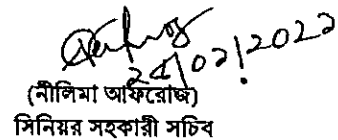 24/02/2022
(নীলিমা আফরোজ)
সিনিয়র সহকারী সচিব